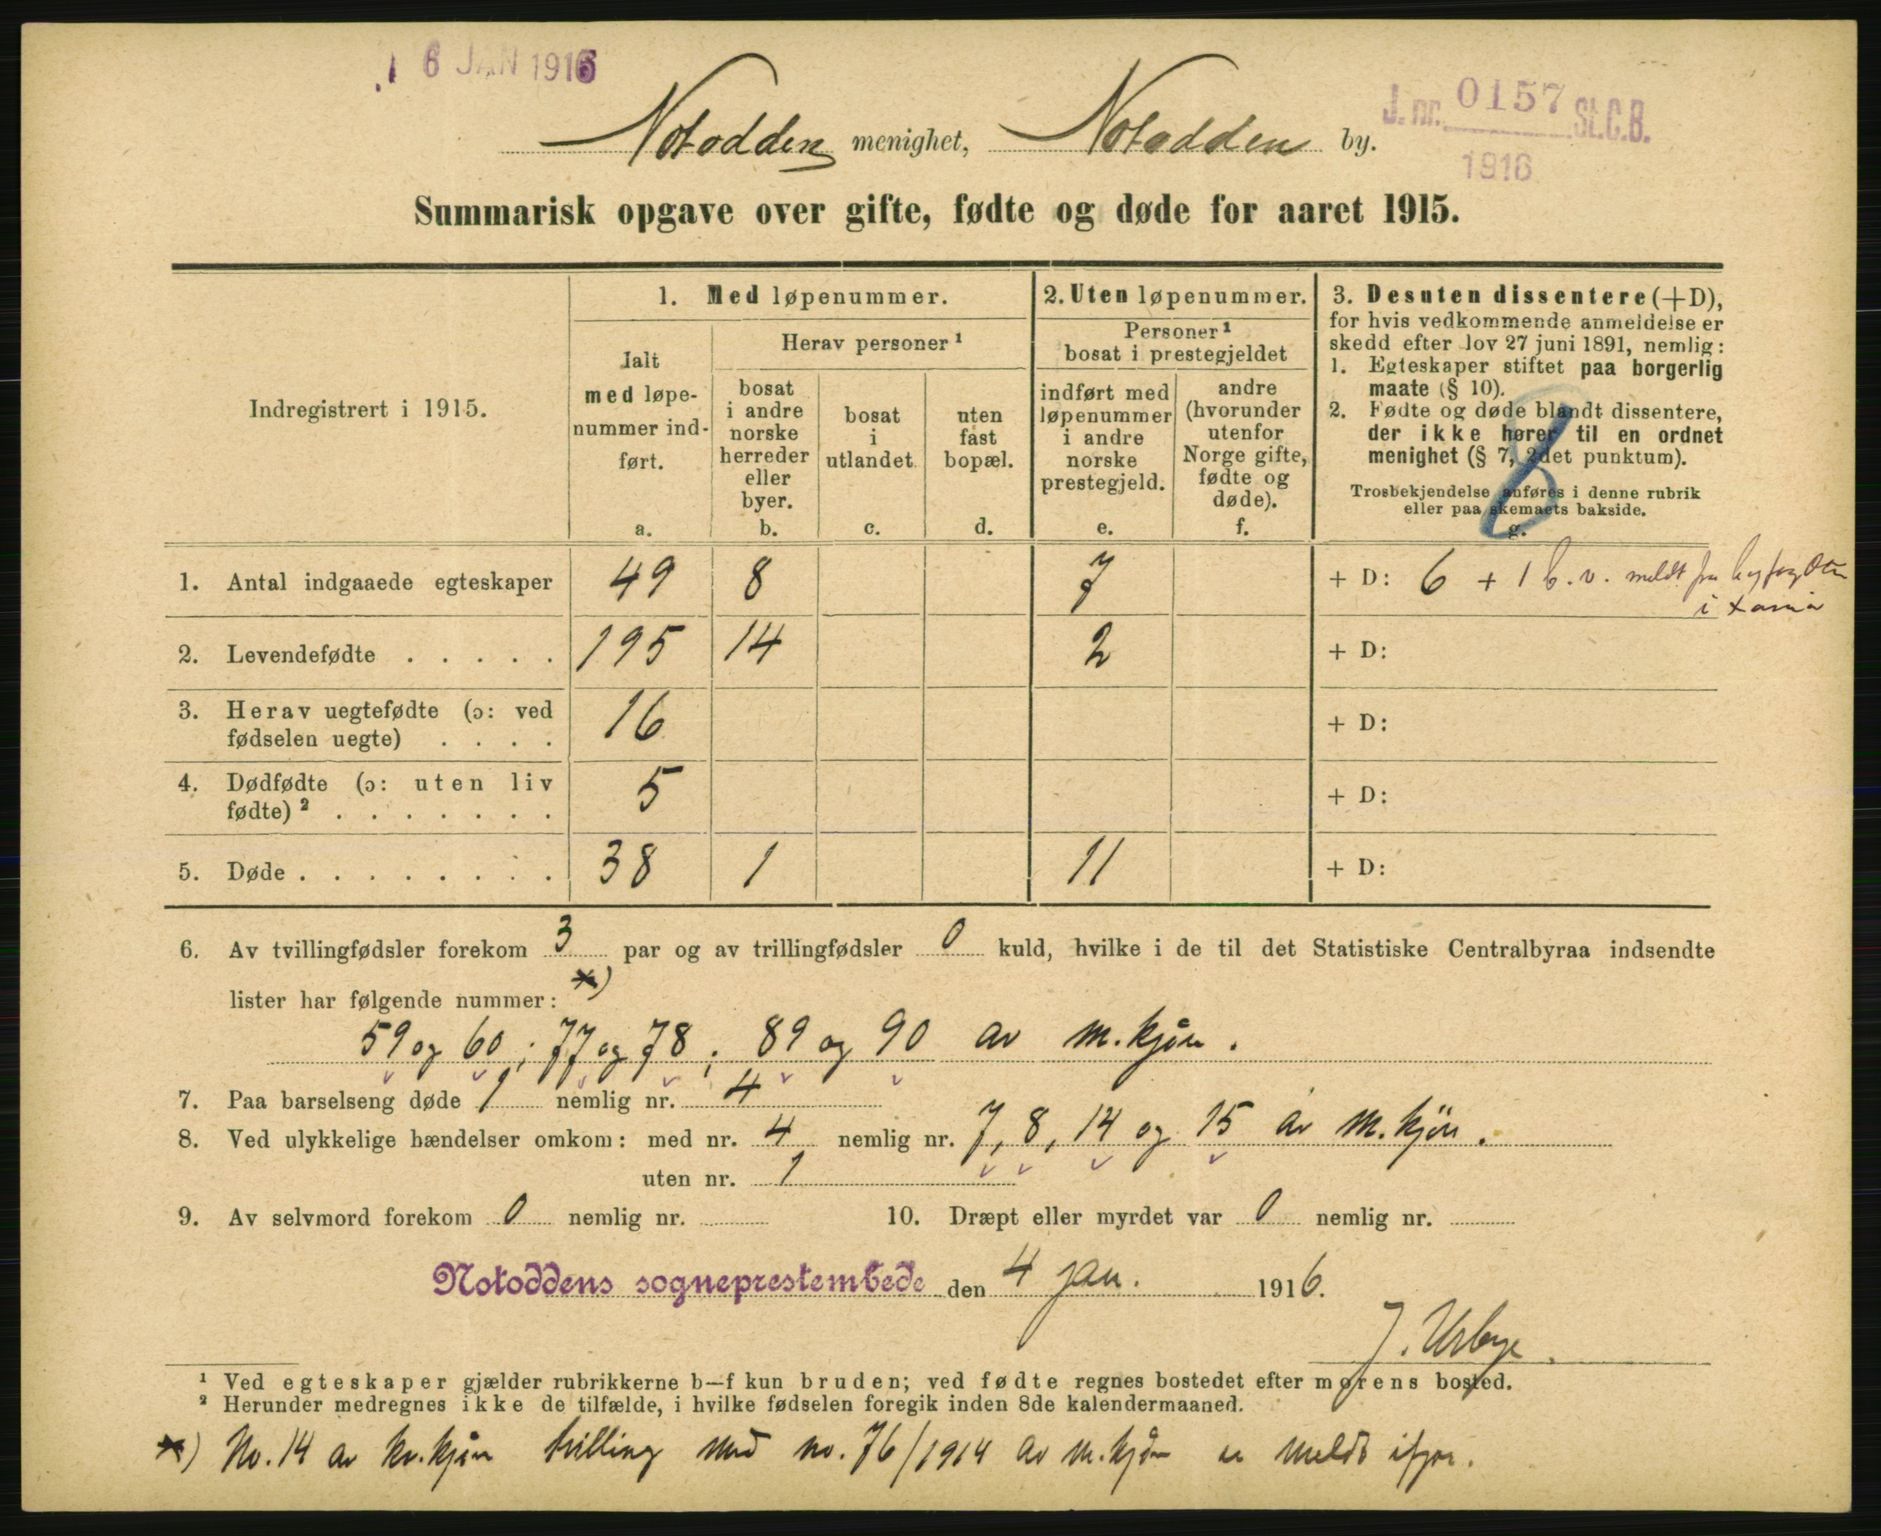 16 JAN 1916
J. nr. 0157 St.C.B.
1916
Notodden menighet, Notodden by.
Summarisk opgave over gifte, fødte og døde for aaret 1915.
Indregistrert i 1915.
1. Med løpenummer.
Ialt
med løpe-
nummer ind-
ført.
a.
Herav personer¹
bosat
i andre
norske
herreder
eller
byer.
b.
bosat
i
utlandet
c.
uten
fast
bopæl.
d.
2. Uten løpenummer.
Personer¹
bosat i prestegjeldet
indført med
løpenummer
i andre
norske
prestegjeld.
e.
andre
(hvorunder
utenfor
Norge gifte,
fødte og
døde).
f.
3. Desuten dissentere (+D),
for hvis vedkommende anmeldelse er
skedd efter lov 27 juni 1891, nemlig:
1. Egteskaper stiftet paa borgerlig
maate (§ 10).
2. Fødte og døde blandt dissentere,
der ikke hører til en ordnet
menighet (§ 7, 2det punktum).
Trosbekjendelse anføres i denne rubrik
eller paa skemaets bakside.
g.
8
1. Antal indgaaede egteskaper 49 8 7 + D: 6 + 1 b.v. meldt fra byfogden
i
2. Levendefødte . . . . . 195 14 2 + D:
3. Herav uegtefødte (ɔ: ved
fødselen uegte) . . . . 16 + D:
4. Dødfødte (ɔ: uten liv
fødte)² . . . . . . . 5 + D:
5. Døde . . . . . . . . 38 1 11 + D:
6. Av tvillingfødsler forekom 3 par og av trillingfødsler 0 kuld, hvilke i de til det Statistiske Centralbyraa indsendte
lister har følgende nummer: *)
59 og 60; 77 og 78; 89 og 90 av m.kjøn.
7. Paa barselseng døde 1 nemlig nr. 4
8. Ved ulykkelige hændelser omkom: med nr. 4 nemlig nr. 7, 8, 14 og 15 av m.kjön.
uten nr. 1
9. Av selvmord forekom 0 nemlig nr.
10. Dræpt eller myrdet var 0 nemlig nr.
Notoddens sogneprestembede den 4 jan. 1916.
J. Urbye.
¹ Ved egteskaper gjælder rubrikkerne b—f kun bruden; ved fødte regnes bostedet efter morens bosted.
² Herunder medregnes ikke de tilfælde, i hvilke fødselen foregik inden 8de kalendermaaned.
*) No. 14 av kv.kjøn tvilling med no. 76/1914 av m.kjøn er meldt ifjor.